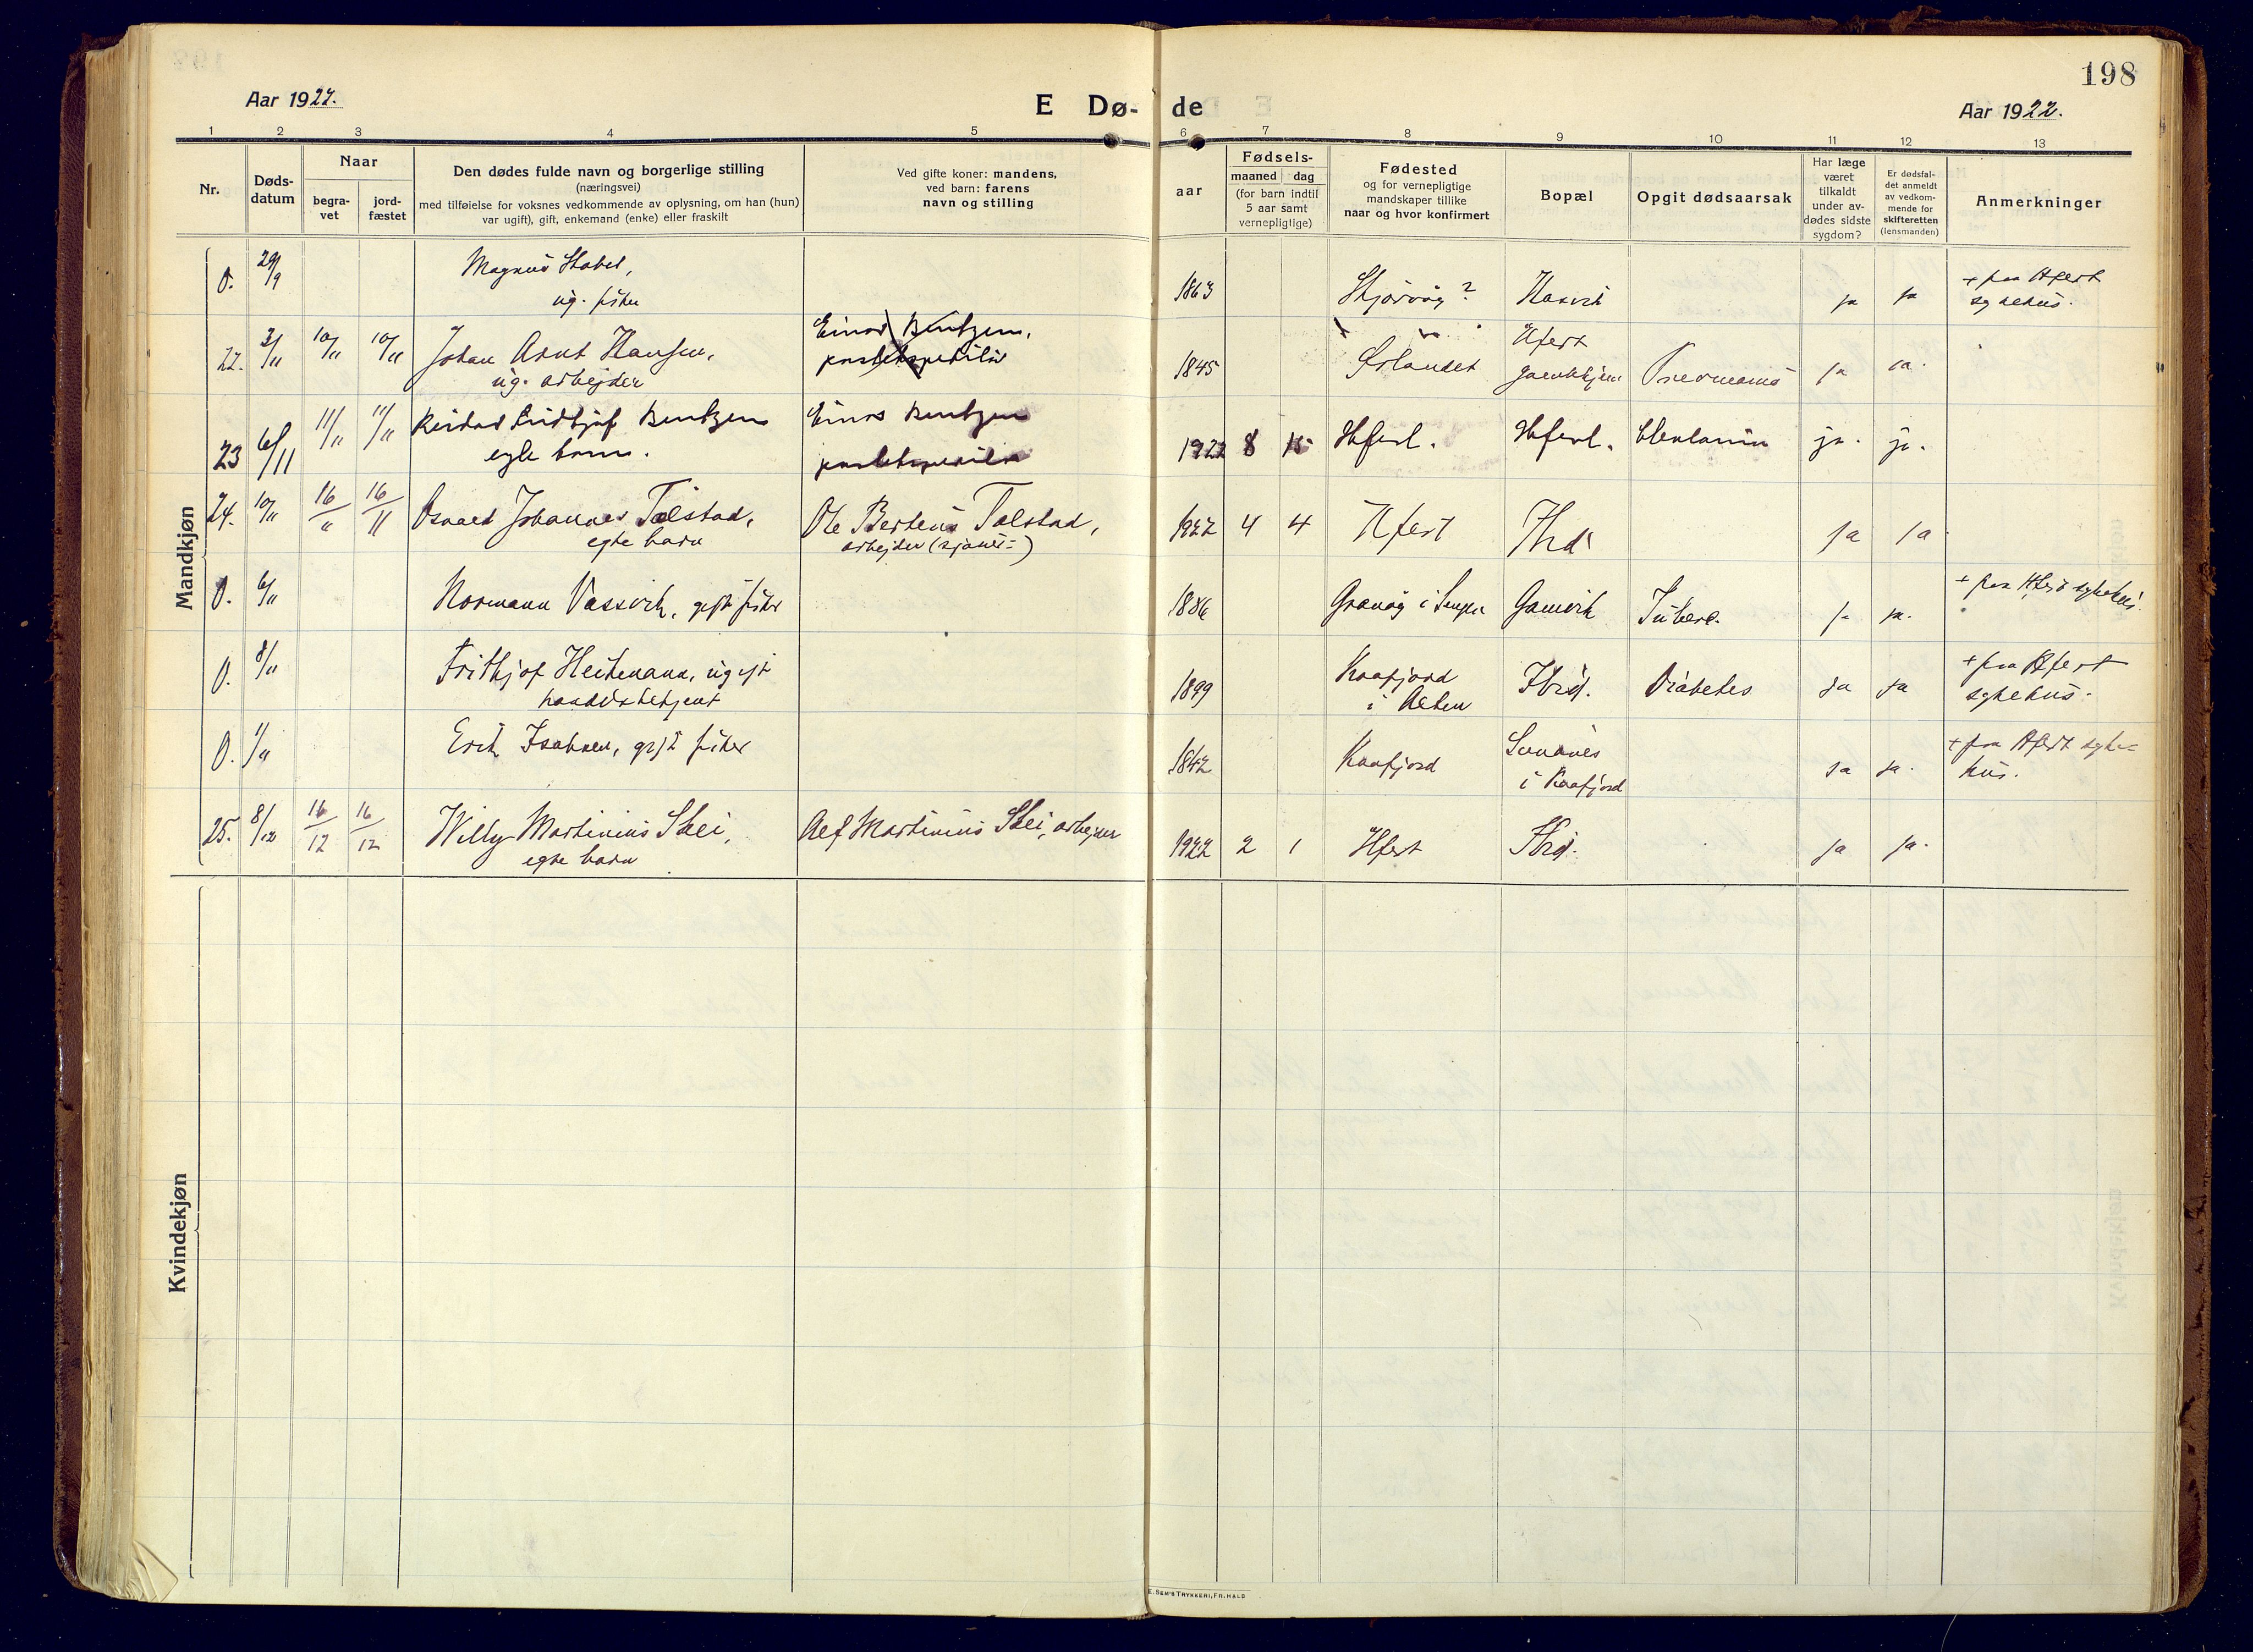 198
Aar 1922.
E Dø-
de
Aar 1922.
1 2 3 4 5 6 7 8 9 10 11 12 13
Nr.
Døds-
datum
Naar
begra-
vet
jord-
fæstet
Den dødes fulde navn og borgerlige stilling
(næringsvei)
med tilføielse for voksnes vedkommende av oplysning, om han (hun)
var ugift), gift, enkemand (enke) eller fraskilt
Ved gifte koner: mandens,
ved barn: farens
navn og stilling
aar
Fødsels-
maaned dag
(for barn indtil
5 aar samt
vernepliglige)
Fødested
og for vernepligtige
mandskaper tillike
naar og hvor konfirmert
Bopæl
Opgit dødsaarsak
Har læge
været
tilkaldt
under av-
dødes sidste
sygdom?
Er dødsfal-
det anmeldt
av vedkom-
mende for
skifteretten
(lensmanden)
Anmerkninger
Mandkjøn
0. 29/9 Magnus Stabel, 1863 Skjørvøy? Hasvik ja ja + paa Hfest
ug. fisker sygehus.
22. 3/11 10/11 10/11 Johan Arnt Hansen, Einar Bentzen, 1845 Ørlandet Hfest ja ja.
ug. arbejder
23 6/11 11/11 11/11 Reidar Fridtjof Bentzen Einar Bentzen 1922 8 15 Hfest. Hfest. ja. ja.
egte barn.
24. 10/11 16/11 16/11 Osvald Johannes Tølstad, Ole Berteus Tølstad, 1922 4 4 Hfest Ibid ja ja
egte barn arbejder (sjauer-)
0. 6/11 Normann Vassvik, gift fisker 1886 Granvåg i Senjen Gamvik Tuberc. ja ja. + paa Hfest sygehus.
0. 8/11 Frithjof Heitmann, ugift 1899 Kaafjord Ibid. Diabetes ja ja + paa Hfest
handelsbetjent i Alten sygehus.
0. 1/11 Erik Isaksen, gift fisker 1842 Kaafjord ja ja. + paa Hfest syge-
i Kaafjord hus.
25. 8/12 16/12 16/12 Willy Martinius Skei, Alf Martinius Skei, arbejder 1922 2 1 Hfest Ibid. ja ja.
egte barn
Kvindekjøn
E. SEM'S TRYKKERI, FR.HALD